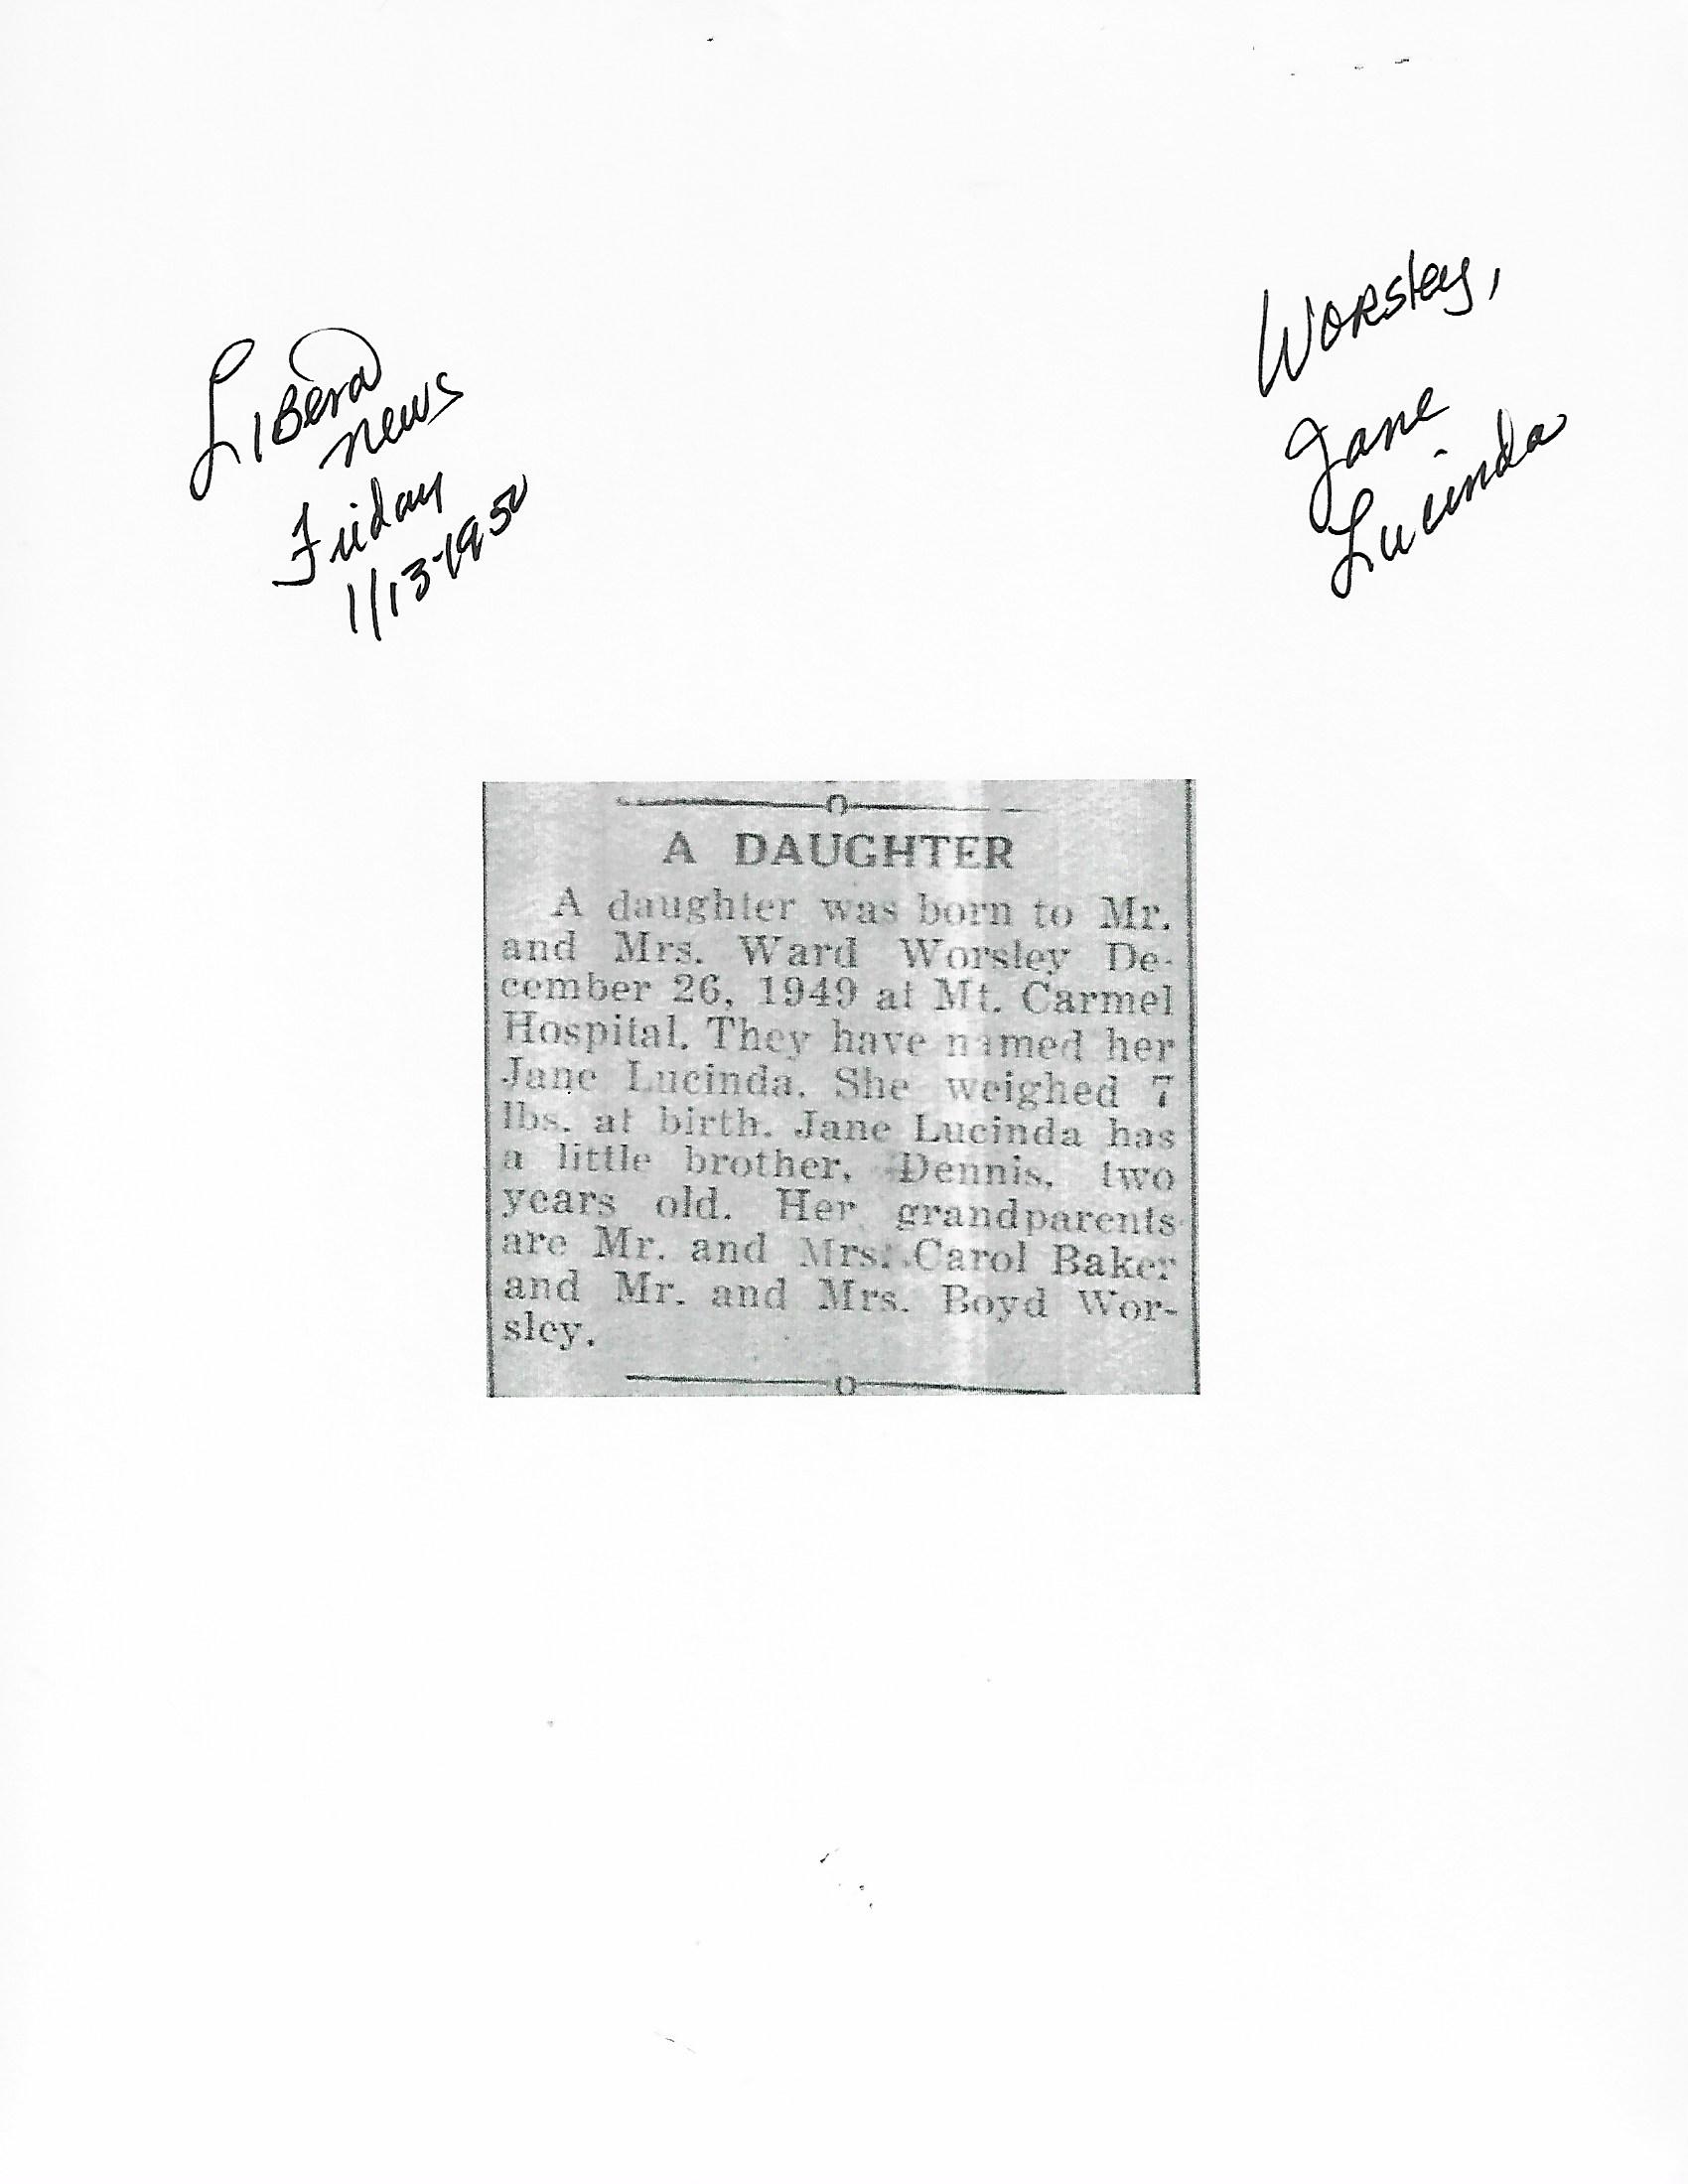 Worsley,
Jane
Lucinda
Liberal
News
Friday
1/13-1950
A DAUGHTER
A daughter was born to Mr.
and Mrs. Ward Worsley De-
cember 26, 1949 at Mt. Carmel
Hospital. They have named her
Jane Lucinda. She weighed 7
lbs. at birth. Jane Lucinda has
a little brother, Dennis, two
years old. Her grandparents
are Mr. and Mrs. Carol Baker
and Mr. and Mrs. Boyd Wor-
sley.